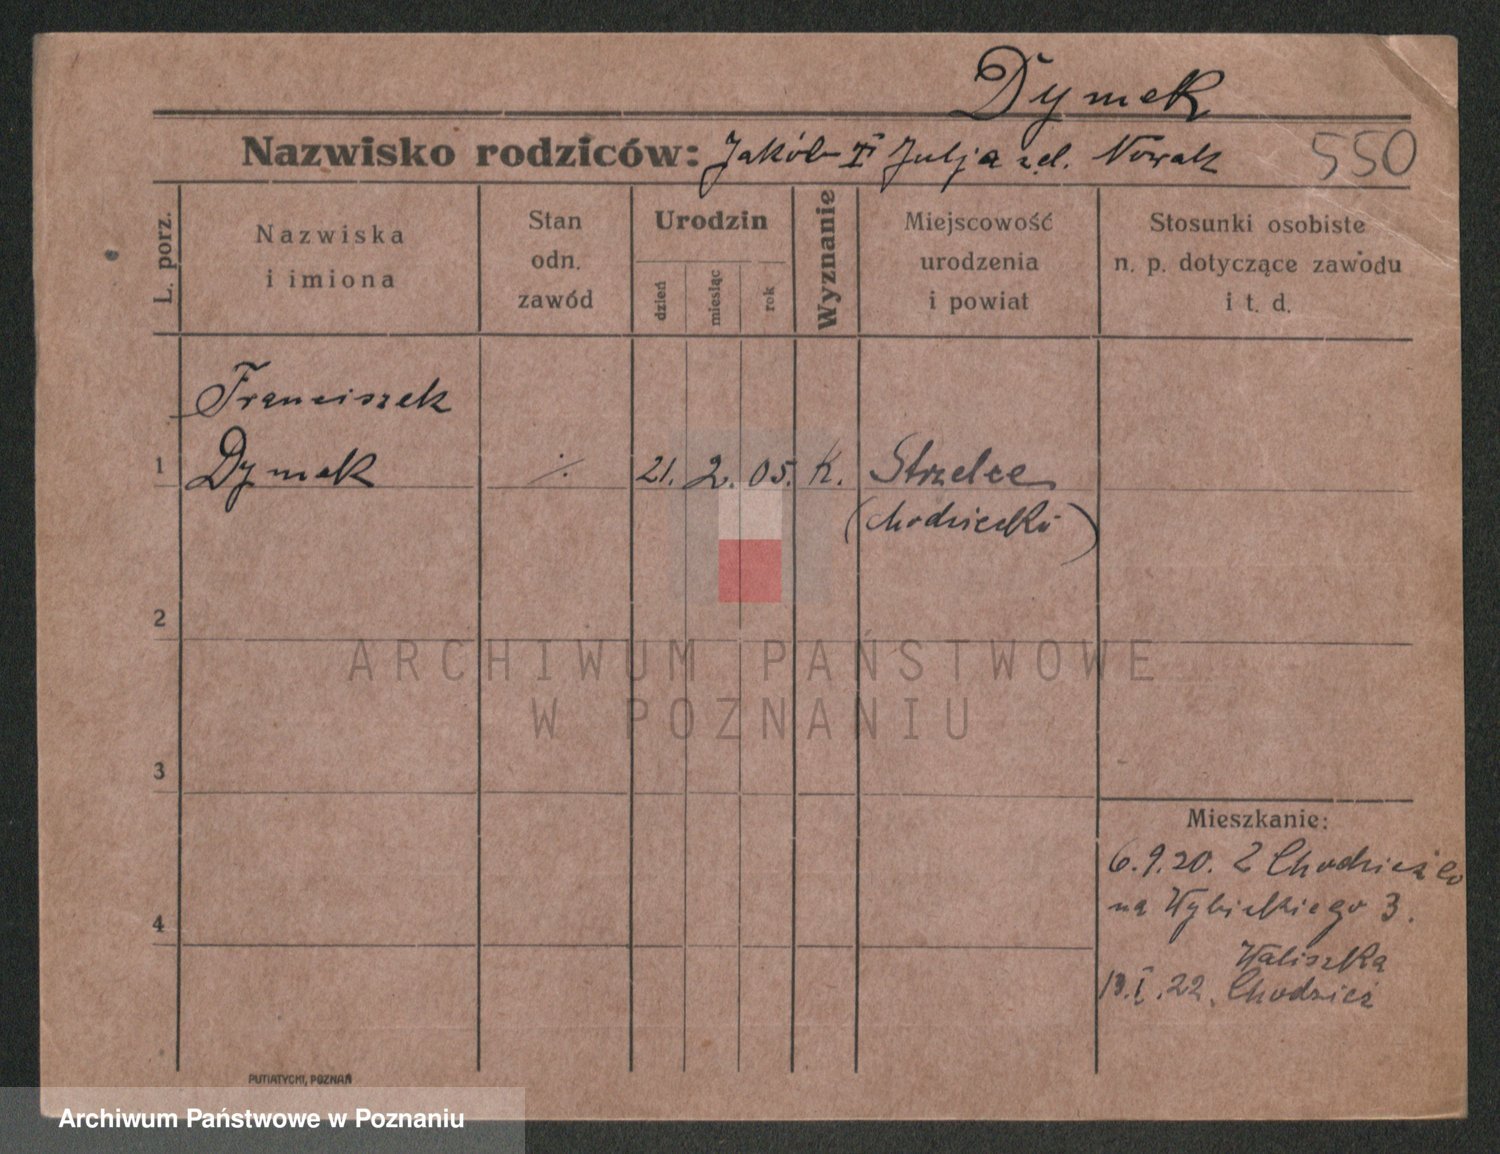 Dymek
Nazwisko rodziców: Jakób i Julja zd. Nowak
550
L. porz.
Nazwiska
i imiona
Stan
odn.
zawód
Urodzin
dzień
miesiąc
rok
Wyznanie
Miejscowość
urodzenia
i powiat
Stosunki osobiste
n. p. dotyczące zawodu
i t. d.
Franciszek
1 Dymek ·/. 21. 2. 05. K. Strzelce
(chodzieski)
2
ARCHIWUM PAŃSTWOWE
W POZNANIU
3
Mieszkanie:
6.9.20. Z Chodzieży
na Wybickiego 3.
4
13.I.22. Chodzież
PUTIATYCKI, POZNAŃ
Archiwum Państwowe w Poznaniu